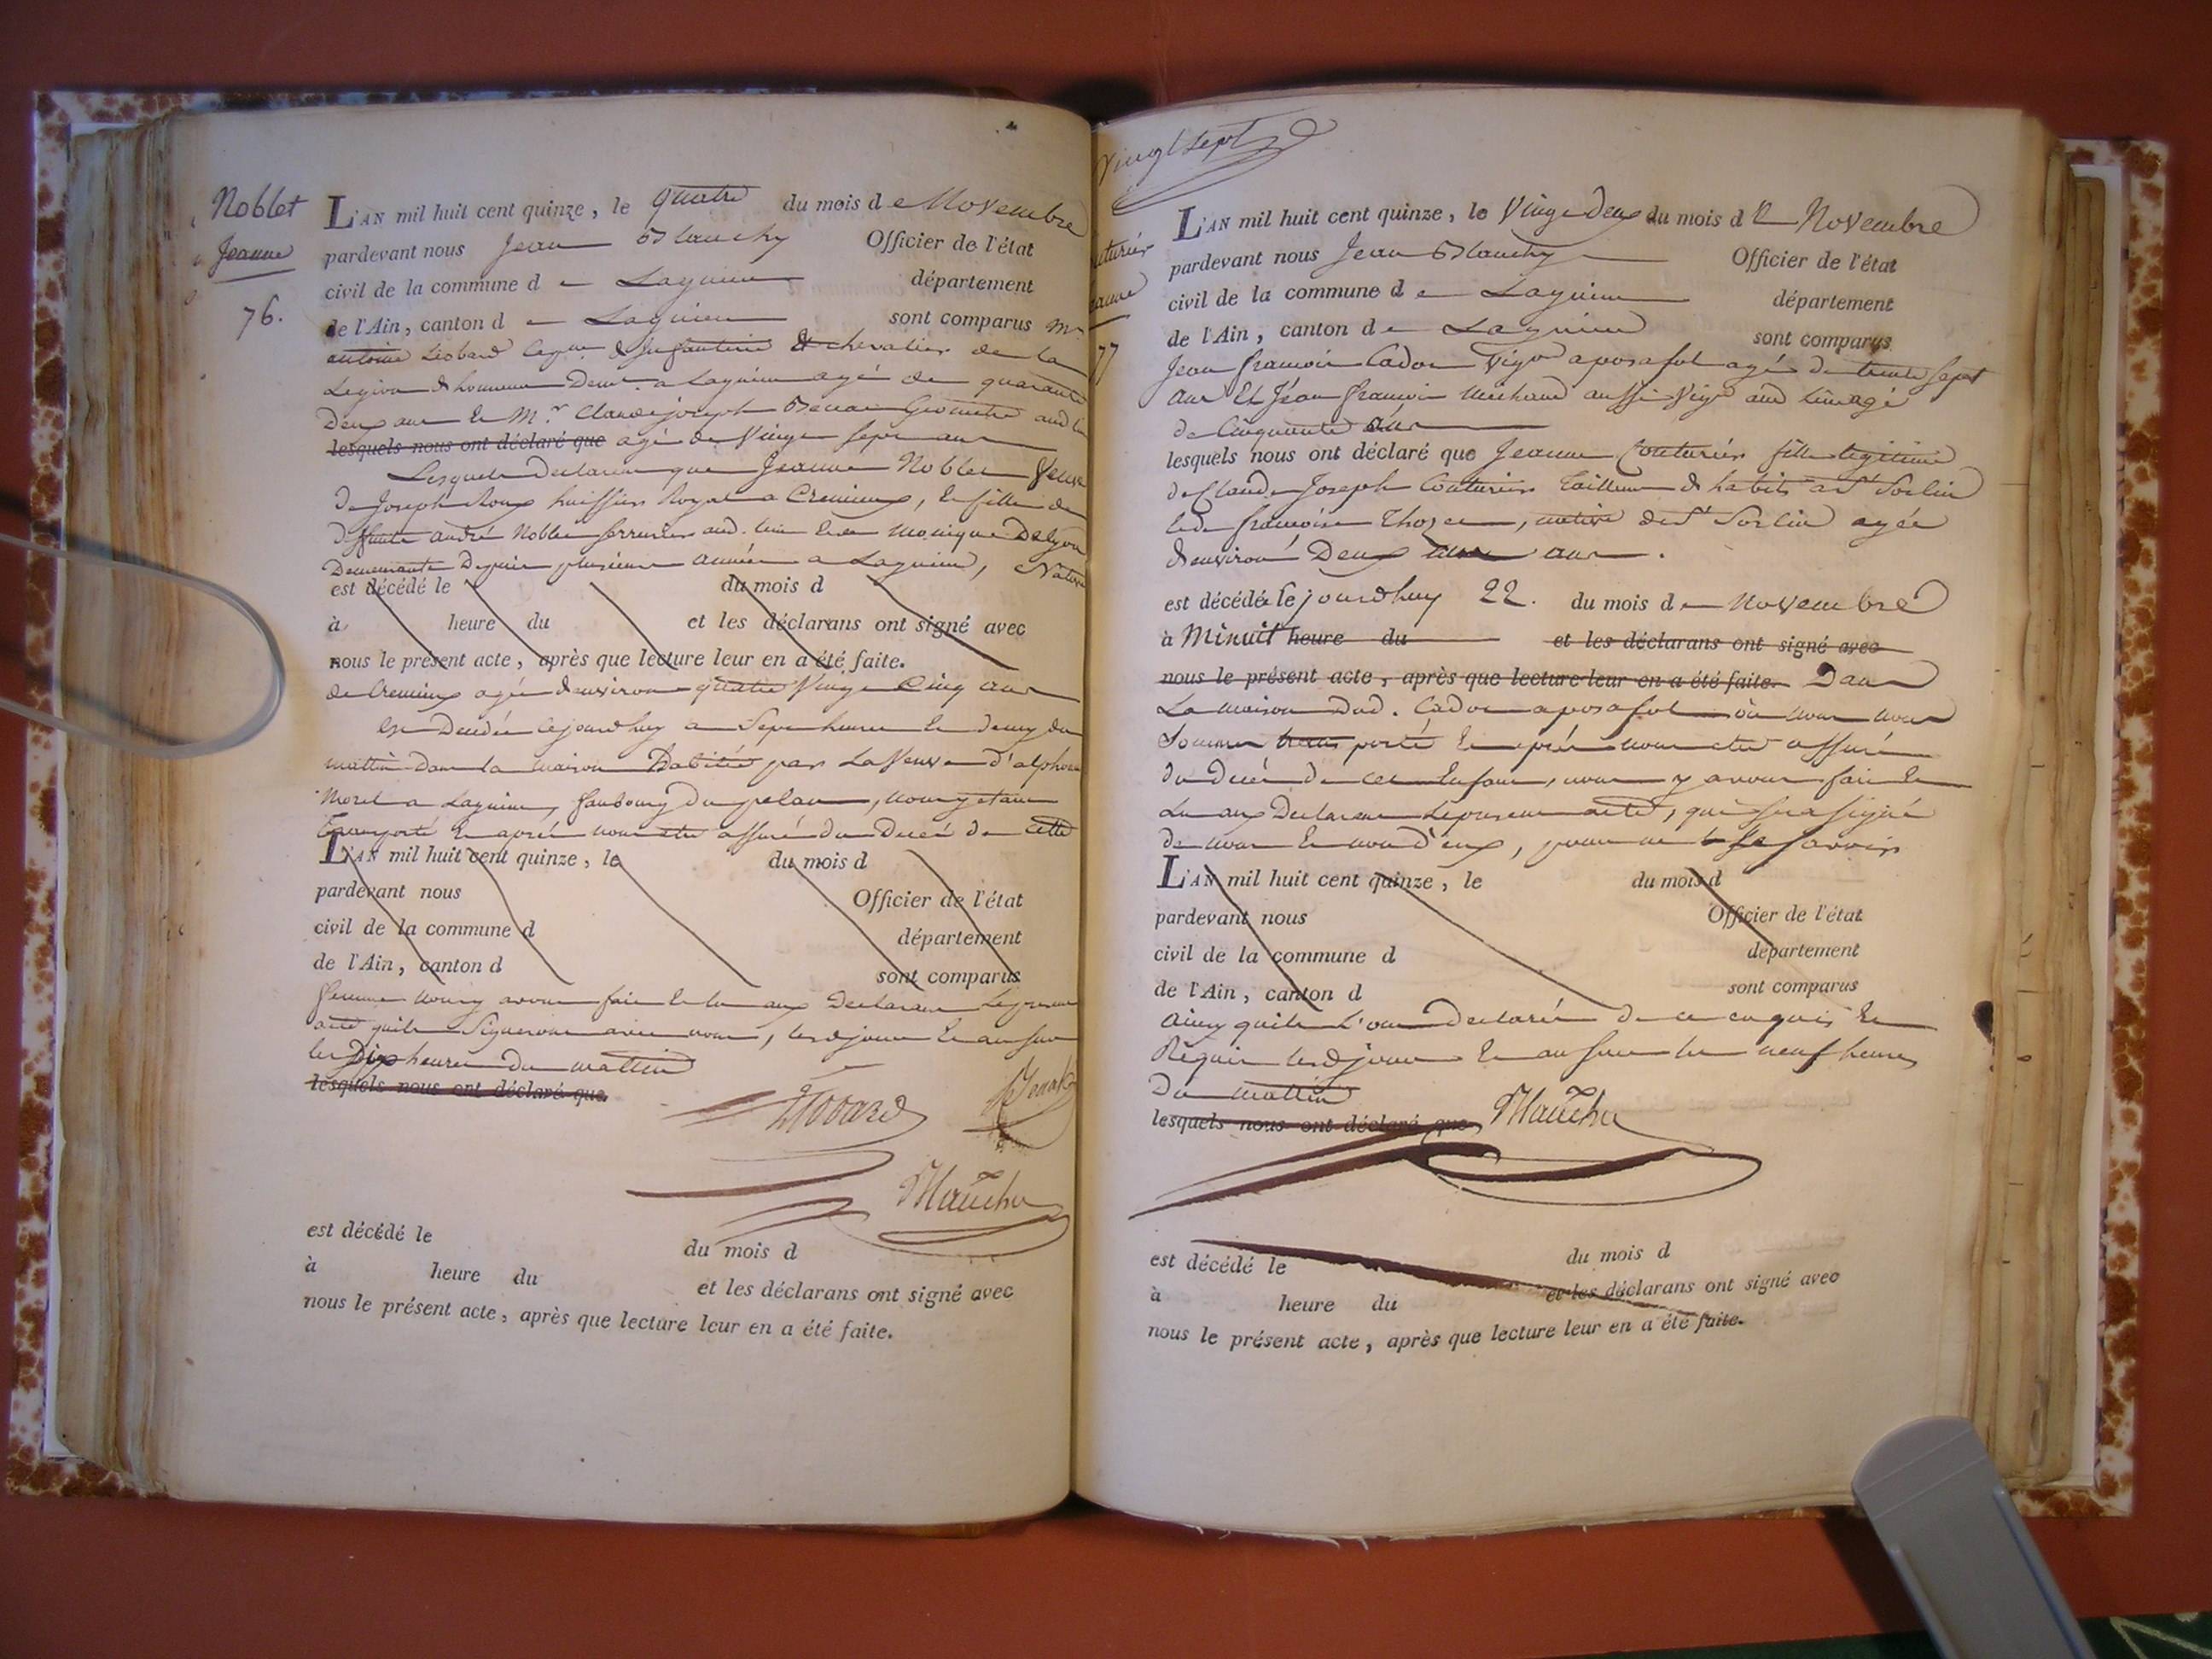 Noblet
Jeanne
76.
L'AN mil huit cent quinze, le quatre du mois de Novembre
pardevant nous Jean Blanchy Officier de l'état
civil de la commune de Lagnieu département
de l'Ain, canton de Lagnieu sont comparus Mr
antoine Liobard Capne d'Infanterie & chevalier de la
Legion d'honneur Demt a Lagnieu agé de quarante
Deux ans Et Mr. Claude joseph Geometre aud lieu
lesquels nous ont déclaré que agé de Vingt sept ans
Lesquels Declarent que Jeanne Noblet Veuve
de Joseph Roux huissier Royal a Cremieux, Et fille de
Deffunts andré Noblet serrurier aud. lieu Et de monique Delyon
Demeurante Depuis plusieurs années a Lagnieu, Native
est décédé le du mois d
à heure du et les déclarans ont signé avec
nous le présent acte, après que lecture leur en a été faite.
de Cremieux agée d'environ quatre Vingt Cinq ans
Est Decedée Cejourdhuy a Sept heures Et demy du
mattin dans la maison habitée par La Veuve d'alphonse
Morel a Lagnieu, faubourg Du, nous y etant
Transporté Et après nous etre assuré du Decés de cette
L'AN mil huit cent quinze, le du mois d
pardevant nous Officier de l'état
civil de la commune d département
de l'Ain, canton d sont comparus
femme nous y avons fait Et lu aux Declarans Le present
acte quils Signeront avec nous, lesd jour Et an sur
les Dix heures Du mattin
lesquels nous ont déclaré que
Liobard
Blanchy
est décédé le du mois d
à heure du et les déclarans ont signé avec
nous le présent acte, après que lecture leur en a été faite.
Vingt sept
uturier
eanne
77
L'AN mil huit cent quinze, le Vingt Deux du mois de Novembre
pardevant nous Jean Blanchy Officier de l'état
civil de la commune de Lagnieu département
de l'Ain, canton de Lagnieu sont comparus
Jean francois Cador Vigon a posafol agé de trente sept
ans Et Jean francois michaud aussi Vigon aud lieu agé
de Cinquante ans
lesquels nous ont déclaré que Jeanne Couturier fille legitime
de Claude Joseph Couturier Tailleur d'habits a St Sorlin
Et de francoise Thozet, native de St Sorlin agée
d'environ Deux ans ans.
est décédée Cejourdhuy 22. du mois de Novembre
à Minuit heure du et les déclarans ont signé avec
nous le présent acte, après que lecture leur en a été faite. Dans
La maison Dud. Cador a posafol où nous nous
Sommes transporté Et après nous etre assuré
du Decés de cet Enfant, nous y avons fait Et
Lu aux Declarans Le present acte, qui sera signé
de nous Et non d'eux, pour ne le savoir
L'AN mil huit cent quinze, le du mois d
pardevant nous Officier de l'état
civil de la commune d département
de l'Ain, canton d sont comparus
ainsy quils L'ont declaré de ce enquis Et
Requis lesd jour Et an sur les neuf heures
Du mattin
lesquels nous ont déclaré que Blanchy
est décédé le du mois d
à heure du et les déclarans ont signé avec
nous le présent acte, après que lecture leur en a été faite.